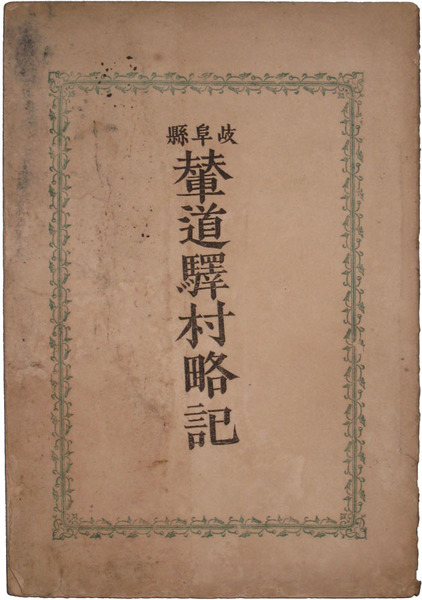 岐阜縣
輦道驛村略記